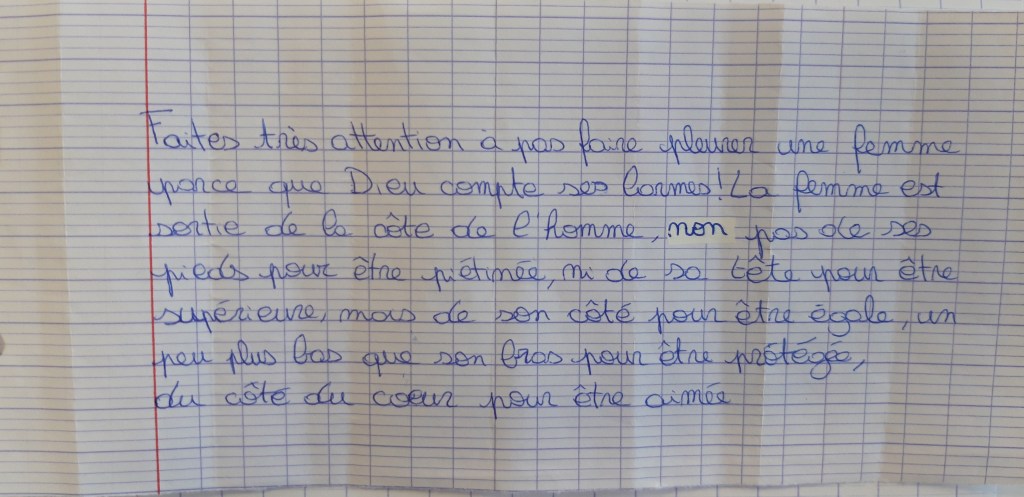 Faites très attention à pas faire pleurer une femme
parce que Dieu compte ses larmes! La femme est
sortie de la côte de l'homme, non pas de ses
pieds pour être piétinée, ni de sa tête pour être
supérieure, mais de son côté pour être égale, un
peu plus bas que son bras pour être protégée,
du côté du coeur pour être aimée